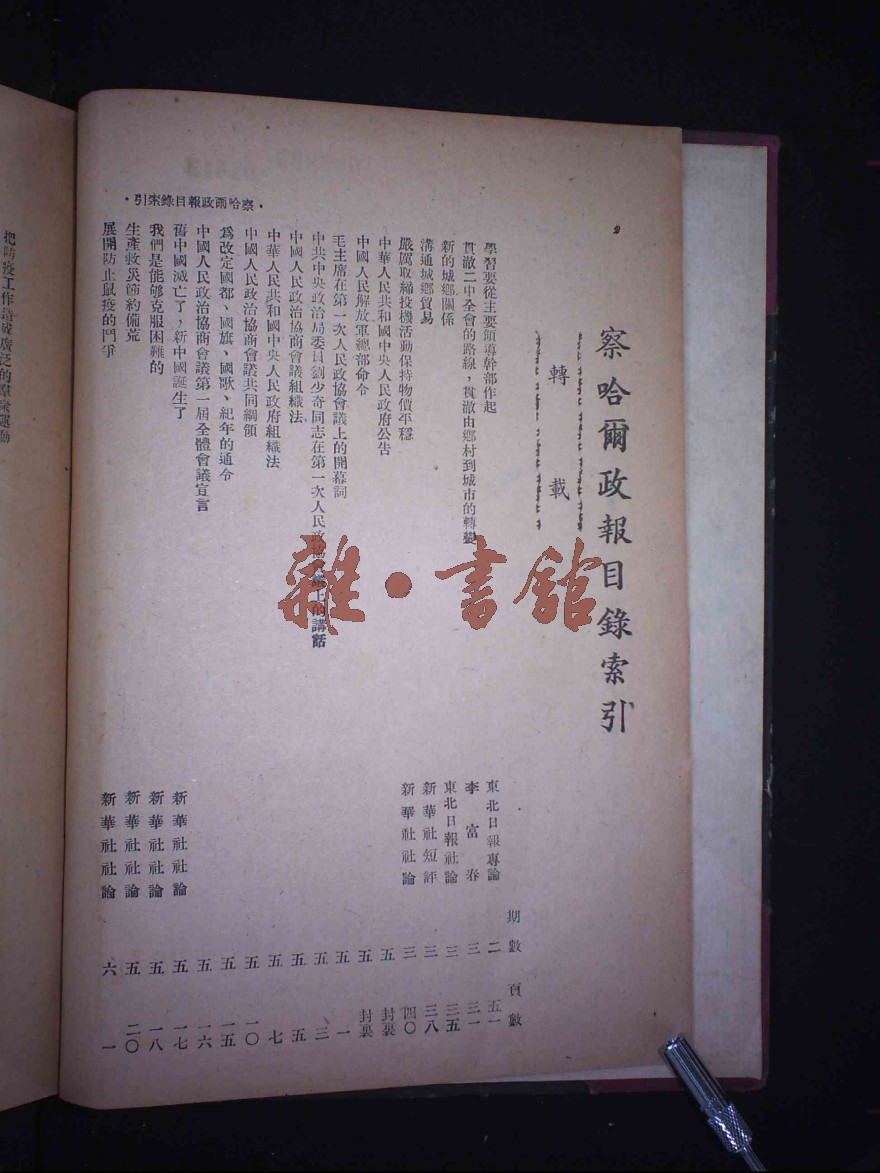 察哈爾政報目錄索引
轉載
期數 頁數
學習要從主要領導幹部作起 東北日報專論 二 五一
貫澈二中全會的路線，貫澈由鄉村到城市的轉變 李富春 三 三一
新的城鄉關係 東北日報社論 三 三五
溝通城鄉貿易 新華社短評 三 三八
嚴厲取締投機活動保持物價平穩 新華社社論 三 四〇
中華人民共和國中央人民政府公告 五 封裏
中國人民解放軍總部命令 五 封裏
毛主席在第一次人民政協會議上的開幕詞 五 一
中共中央政治局委員劉少奇同志在第一次人民政協會議上的講話 五 三
中國人民政治協商會議組織法 五 五
中華人民共和國中央人民政府組織法 五 七
中國人民政治協商會議共同綱領 五 一〇
為改定國都、國旗、國歌、紀年的通令 五 一五
中國人民政治協商會議第一屆全體會議宣言 五 一六
舊中國滅亡了，新中國誕生了 新華社社論 五 一七
我們是能够克服困難的 新華社社論 五 一八
生產救災節約備荒 新華社社論 五 二〇
展開防止鼠疫的鬥爭 新華社社論 六 一
·察哈爾政報目錄索引·
把防疫工作造成廣泛的羣衆運動
雜·書館